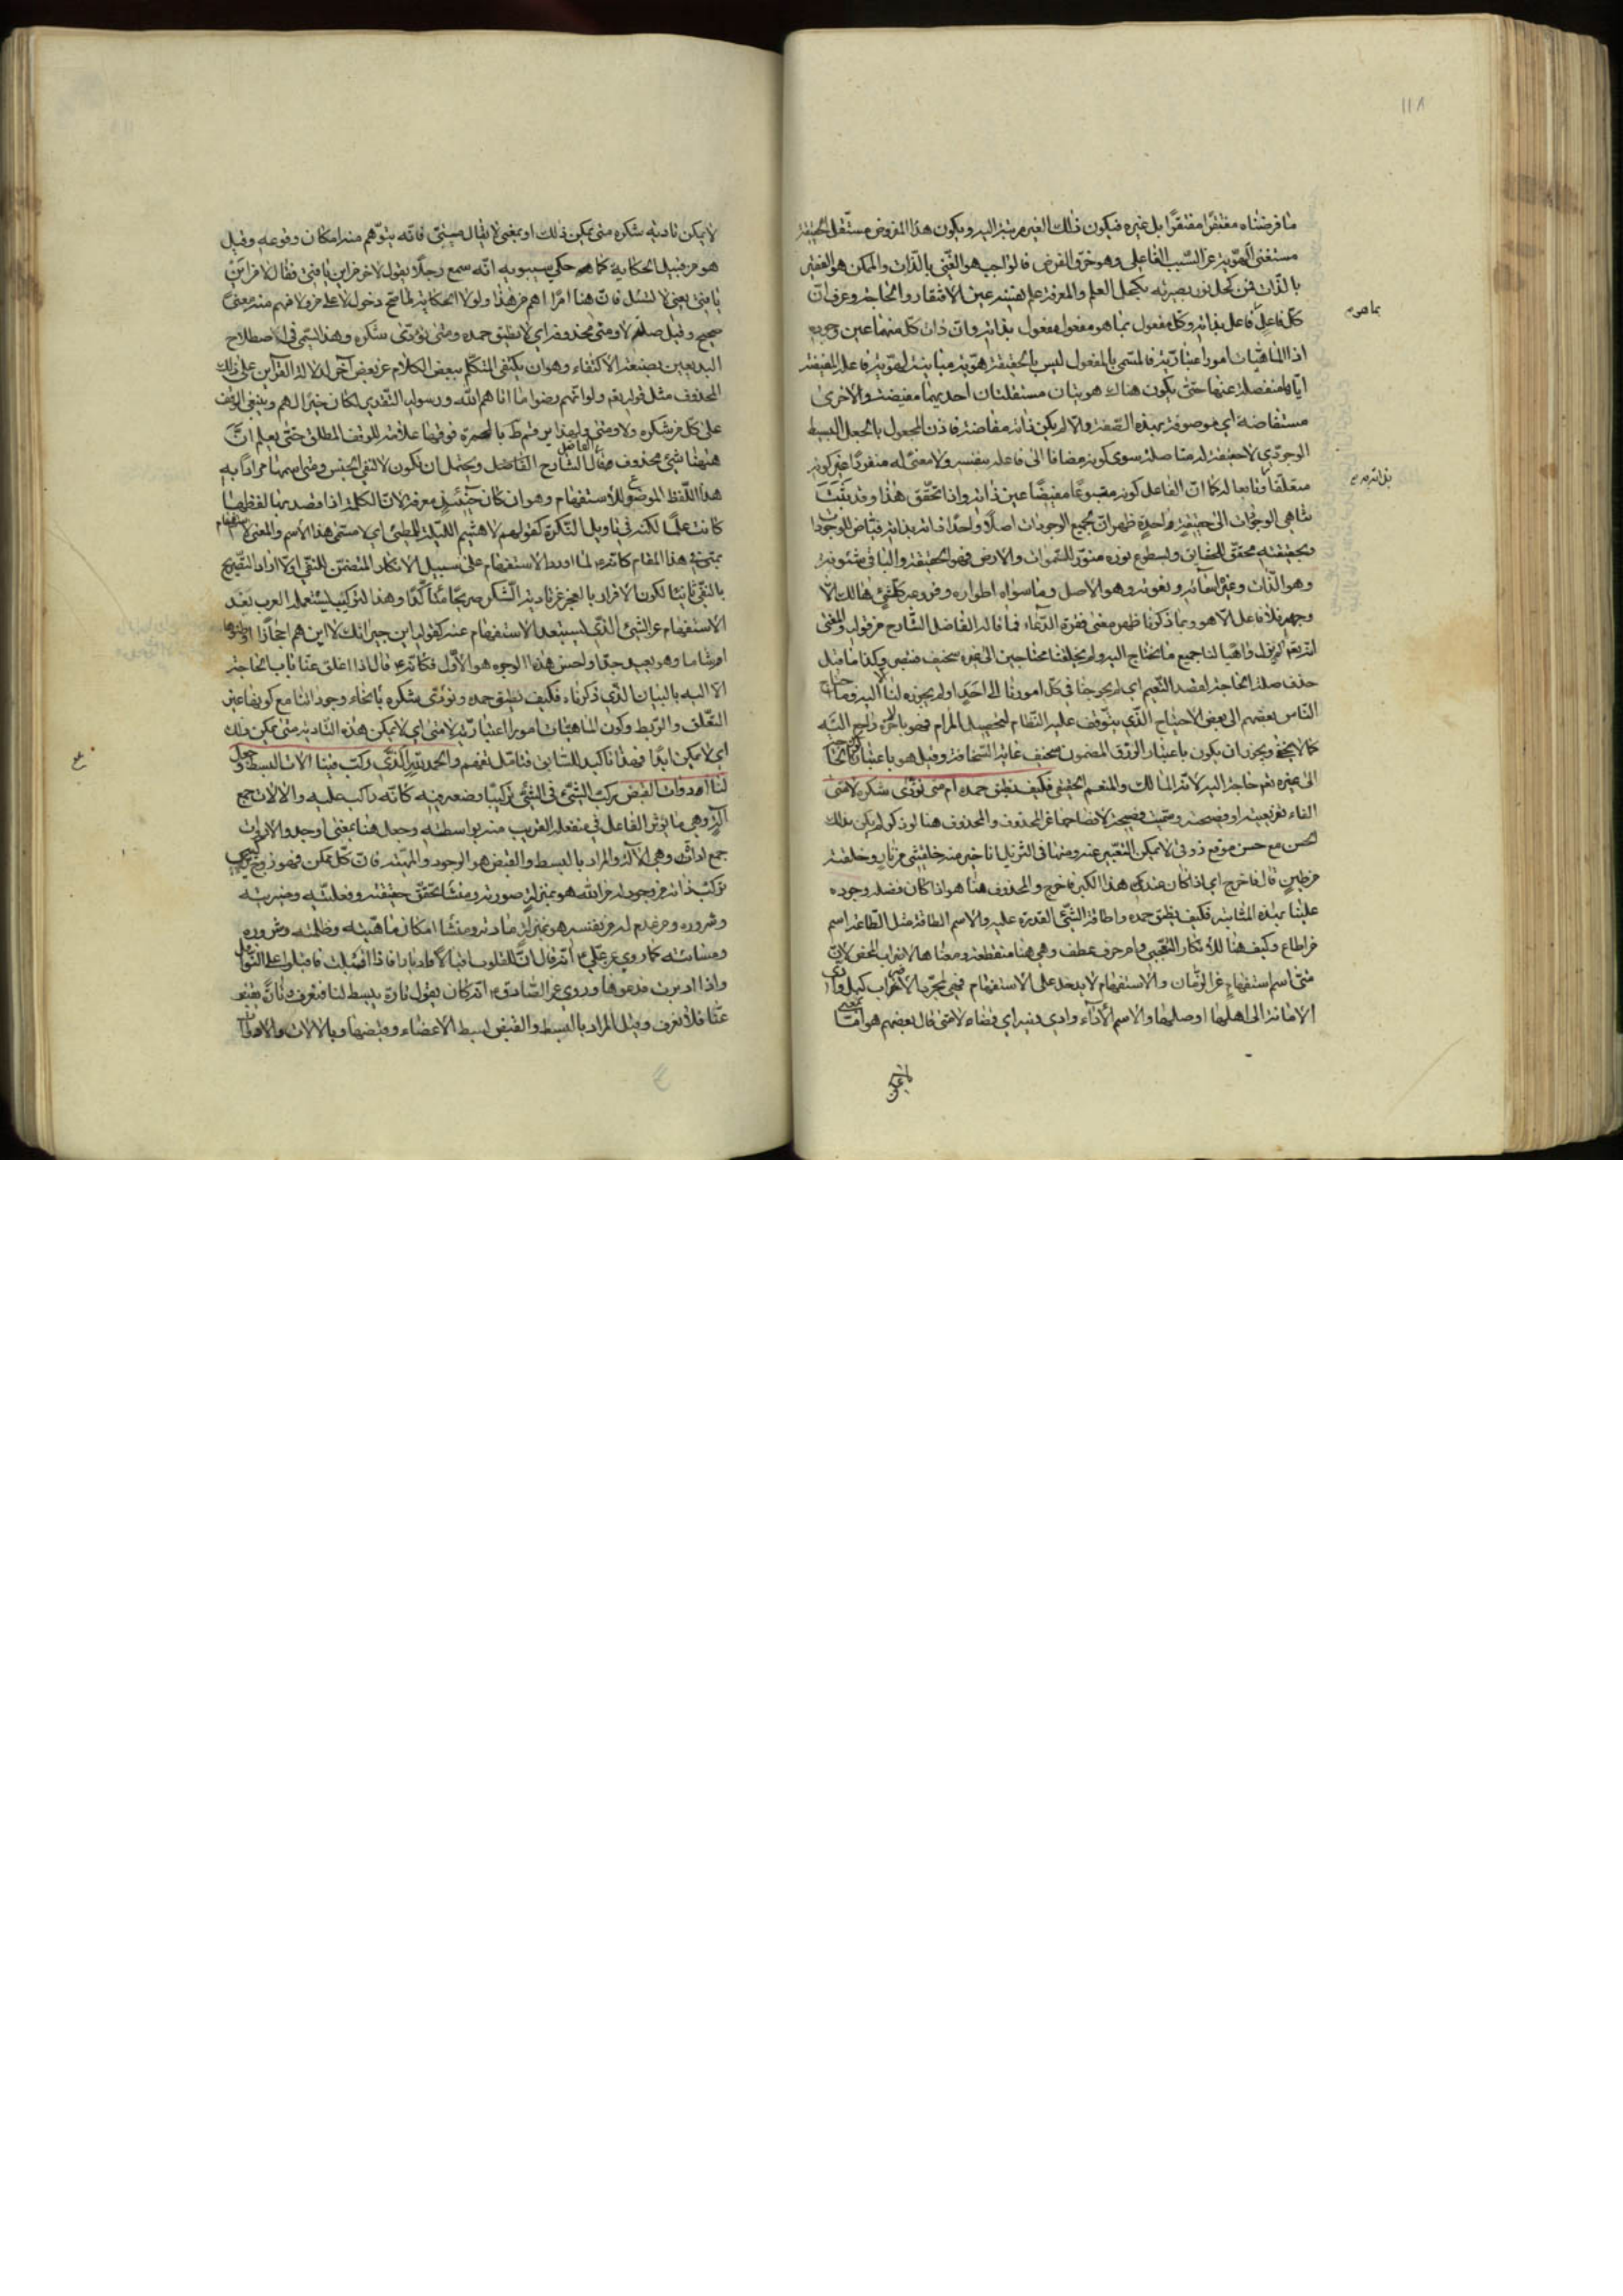 ١١٨
ما فرضناه مفتقرا مفتقرا بل غيره فيكون ذلك الغير مرتبته اليه ويكون هذا المفروض مستقل الحقيقة
مستغنى الهوية عن السبب الفاعلى وهو خرق الفرض فالواجب هو الغنى بالذات والممكن هو الفقير
بالذات فمن كحل نور بصيرته بكحل العلم والمعرفة علم نفسه عين الافتقار والحاجة وعرف ان
كل فاعل فاعل بذاته وكل مفعول بما هو مفعول مفعول بذاته وان ذات كل منهما عين وجوده
بما هو
اذ الماهيات امور اعتبارية فالمسمى بالمفعول ليس بالحقيقة هوية مباينة لهوية فاعله المفيضة
اياها منفصلة عنها حتى يكون هناك هويتان مستقلتان احديهما مفيضة والاخرى
مستفاضة اى موصوفة بهذه الصفة والا لم يكن ذاته مفاضة فاذن المجعول بالجعل البسيط
الوجودى لا حقيقة له متاصلة سوى كونه مضافا الى فاعله بنفسه ولا معنى له منفردا غير كونه
متعلقا وتابعا له كما ان الفاعل كونه متبوعا مفيضا عين ذاته واذا تحقق هذا وقد ثبت
تناهى الوجودات الى حقيقة واحدة ظهر ان لجميع الوجودات اصلا واحدا ذاته بذاته فياض للوجودات
وبحقيقته محقق الحقايق وبسطوع نوره منور للسموات والارض فهو الحقيقة والباقى شئونه
وهو الذات وغيره اسمائه ونعوته وهو الاصل وما سواه اطواره وفروعه كل شئ هالك الا
وجهه فلا فاعل الا هو وبما ذكرنا ظهر معنى فقرة الدعاء فما قاله الفاضل الشارح من قوله والمعنى
انه تعالى لم يزل واهبا لنا جميع ما نحتاج اليه ولم يجعلنا محتاجين الى غيره سخيف وكذا ما قيل
حذف صلة الحاجة لقصد التعميم اى لم يحوجنا فى كل امورنا الى احد او لم يحوجنا الا اليه وما احتاج
الناس بعضهم الى بعض الاحتياج الذى يتوقف عليه النظام لتحصيل المرام فهو بالاخرة راجع اليه
كما لا يخفى ويجوز ان يكون باعتبار الرزق المضمون سخيف غاية السخافة وقيل هو باعتبار
الى غيره نفى حاجة اليه لانه المالك والمنعم الحقيقى فكيف نطيق حمده ام متى نؤدى شكره لا متى
الفاء تفريعية او فصيحة وسميت فصيحة لافصاحها عن المحذوف والمحذوف هنا لو ذكر لم يكن بذلك
الحسن مع حسن موقع ذوقى لا يمكن التعبير عنه ومنها فى التنزيل انا خير منه خلقتنى من نار وخلقته
من طين قال فاخرج اى اذا كان عندك هذا الكبر فاخرج والمحذوف هنا هو اذا كان فضله وجوده
علينا بهذه المثابة فكيف نطيق حمده واطاقة الشئ القدرة عليه والاسم الطاقة مثل الطاعة اسم
من اطاع وكيف هنا للانكار التعجبى وام حرف عطف وهى هنا منقطعة ومعناها الاضراب المحض لان
متى اسم استفهام عن الزمان والاستفهام لا يدخل على الاستفهام فهى لمجرد الاضراب كبل وادى
الامانة الى اهلها اوصلها والاسم الأداء وادى دينه اى قضاه لا متى قال بعضهم هو اما بمعنى
لا يمكن
لا يمكن تاديه شكره متى يمكن ذلك او بمعنى لا يقال متى فانه يتوهم منه امكان وقوعه وقيل
هو من قبيل الحكاية كما حكى سيبويه انه سمع رجلا يقول لاخر من اين يا فتى فقال لا من اين
يا فتى يعنى لا تسئل فان هنا امرا اهم من هذا ولولا الحكاية لما صح دخول لا على من ولا فهم منه معنى
صحيح وقيل صلة لا ومتى محذوفة اى لا نطيق حمده ومتى نؤدى شكره وهذا يسمى فى اصطلاح
البديعيين بصنعة الاكتفاء وهو ان يكتفى المتكلم ببعض الكلام عن بعض آخر لدلالة القرآين على ذلك
المحذوف مثل قوله تعالى ولو انهم رضوا ما اتاهم الله ورسوله التقدير لكان خيرا لهم وينبغى الوقف
على كل من شكره ولا ومتى ولهذا رقم ط بالحمرة فوقها علامة للوقف المطلق حتى يعلم ان
ههنا شئ محذوف فقال الشارح الفاضل ويحتمل ان تكون لا لنفى الجنس ومتى اسمها مرادا به
هذا اللفظ الموضوع للاستفهام وهو وان كان حينئذ معرفة لان الكلمة اذا قصد بها لفظها
كانت علما لكنه فى تاويل النكرة كقولهم لا هيثم الليلة للمطى اى لا مسمى هذا الاسم والمعنى لا استفهام
بمتى فى هذا المقام كانه لما اورد الاستفهام على سبيل الانكار المتضمن للنفى اولا اراد التصريح
بالنفى ثانيا لكون الاقرار بالعجز عن تادية الشكر صريحا مؤكدا وهذا التركيب يستعمله العرب بعد
الاستفهام عن الشئ الذى يستبعد الاستفهام عنه كقوله اين جيرانك لا اين هم احجازا اوطنوها
ام شاما وهو بعيد جدا واحسن هذه الوجوه هو الاول فكانه قال اذا اغلق عنا باب الحاجة
الا اليه بالبيان الذى ذكرناه فكيف نطيق حمده ونؤدى شكره بانحاء وجوداتنا مع كونها عين
التعلق والربط وكون الماهيات امورا اعتبارية لا متى اى لا يمكن هذه التادية متى يمكن ذلك
اى لا يمكن ابدا فهذا تاكيد للسابق فتامل تفهم والحمد لله الذى ركب فينا الات البسط وجعل
لنا ادوات القبض تركيب الشئ فى الشئ تركيبا وضعه فيه كانه راكب عليه والالات جمع
آلة وهى ما يؤثر الفاعل فى منفعله القريب منه بواسطته وجعل هنا بمعنى اوجد والادوات
جمع اداة وهى الآلة والمراد بالبسط والقبض هو الوجود والمهية فان كل ممكن فهو زوج تركيبى
تركب ذاته من وجود له من الله هو بمنزلة صورته ومنشأ تحقق حقيقته وفعليته وخيريته
وشروره ومن عدم له من نفسه هو بمنزلة مادته ومنشا امكان ماهيته وظلمته وشروره
ومسائته كما روى عن على ع انه قال ان للقلوب اقبالا وادبارا فاذا اقبلت فاقبلوا على النوافل
واذا ادبرت فدعوها وروى عن الصادق ع انه كان يقول تارة يبسط لنا فنعرف وتارة يقبض
عنا فلا نعرف وقيل المراد بالبسط والقبض بسط الاعضاء وقبضها وبالالات والادوات